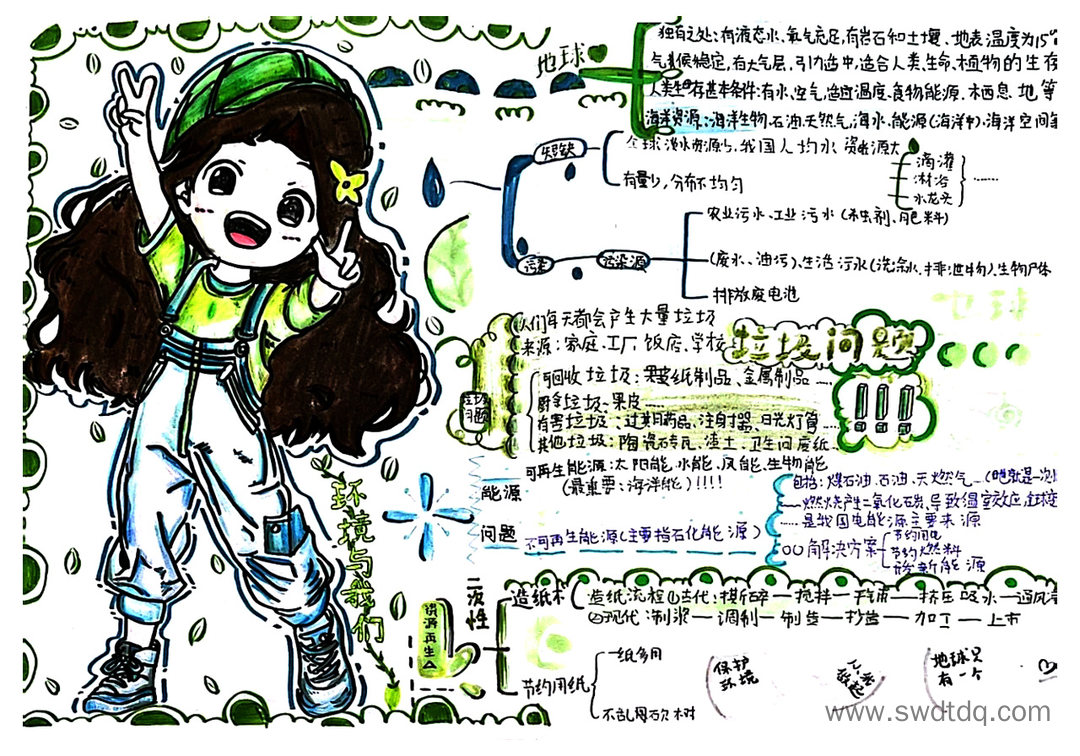 地球
独有之处:有液态水、氧气充足,有岩石和土壤、地表温度为15°
气候稳定,有大气层,引力适中,适合人类、生命、植物的生存
人类生存基本条件:有水、空气,适宜温度、食物能源、栖息地等
海洋资源:海洋生物、石油、天然气,海水、能源(海洋中)、海洋空间
短缺
全球淡水资源少,我国人均水资源
有量少,分布不均匀
滴灌
淋浴
水龙头
......
污染
污染源
农业污水、工业污水(杀虫剂、肥料)
(废水、油污)、生活污水(洗涤水、排泄物)、生物尸体
排放废电池
地球
人们每天都会产生大量垃圾
来源:家庭、工厂、饭店、学校
垃圾问题
垃圾问题
可回收垃圾:果皮纸制品、金属制品....
厨余垃圾、果皮
有害垃圾:过期药品、注射器、日光灯管....
其他垃圾:陶瓷砖瓦、渣土、卫生间废纸....
能源
问题
可再生能源:太阳能、水能、风能、生物能
(最重要:海洋能)!!!!
不可再生能源(主要指石化能源)
包括:煤石油、石油、天然气
燃烧产生二氧化碳、导致温室效应
是我国电能源主要来源
解决方案
节约用电
节约燃料
新能源
环境与我们
资源再生
一次性
造纸术
造纸流程①古代:
②现代:制浆—调制—制造—抄造—加工—上市
节约用纸
一纸多用
不乱砍树
保护
环境
地球只
有一个
www.swdtdq.com